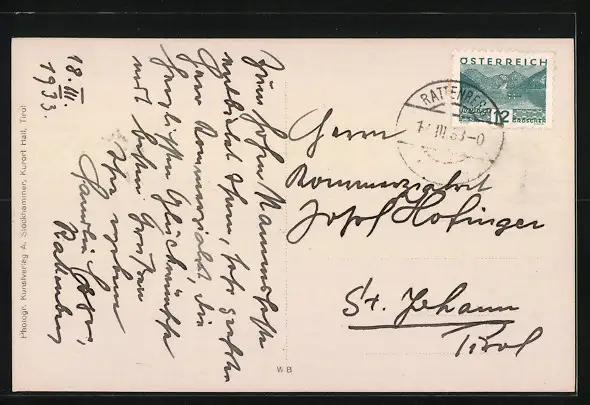 18. III.
1933.
Zum hohen Namensfeste
entbietet Ihnen, sehr geehrter
Herr Kommerzialrat, die
herzlichsten Glückwünsche
mit besten Grüßen
Ihr ergebener
Familie
Rattenberg
Photogr. Kunstverlag A. Stockhammer, Kurort Hall, Tirol
WB
ÖSTERREICH
12
GROSCHEN
RATTENBERG
III 33-0
Herrn
Kommerzialrat
Josef Hofinger
St. Johann
Tirol